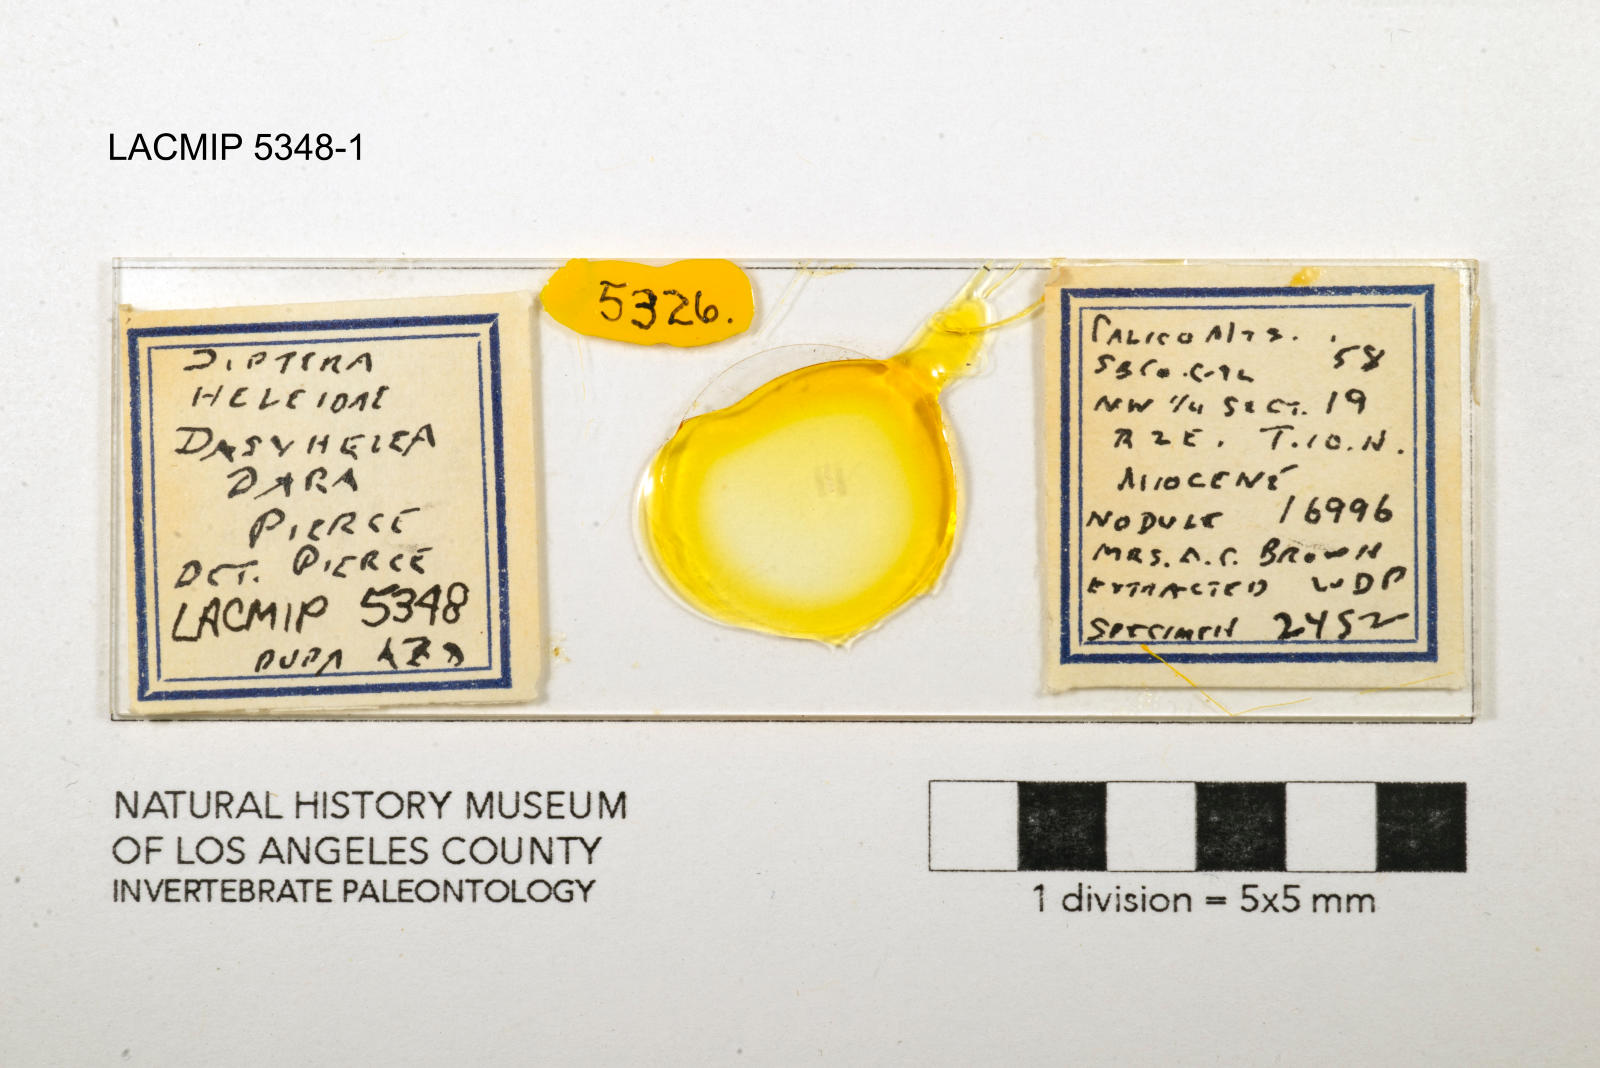 LACMIP 5348-1
5326.
DIPTERA
HELEIDAE
DASYHELEA
DARA
PIERCE
DET. PIERCE
LACMIP 5348
PUPA
CALICO MTS.
58
SB CO. CAL
NW 1/4 SECT. 19
R 2 E. T.10.N.
MIOCENE
NODULE 16996
MRS. A.C. BROWN
EXTRACTED WDP
SPECIMEN 2452
NATURAL HISTORY MUSEUM
OF LOS ANGELES COUNTY
INVERTEBRATE PALEONTOLOGY
1 division = 5x5 mm